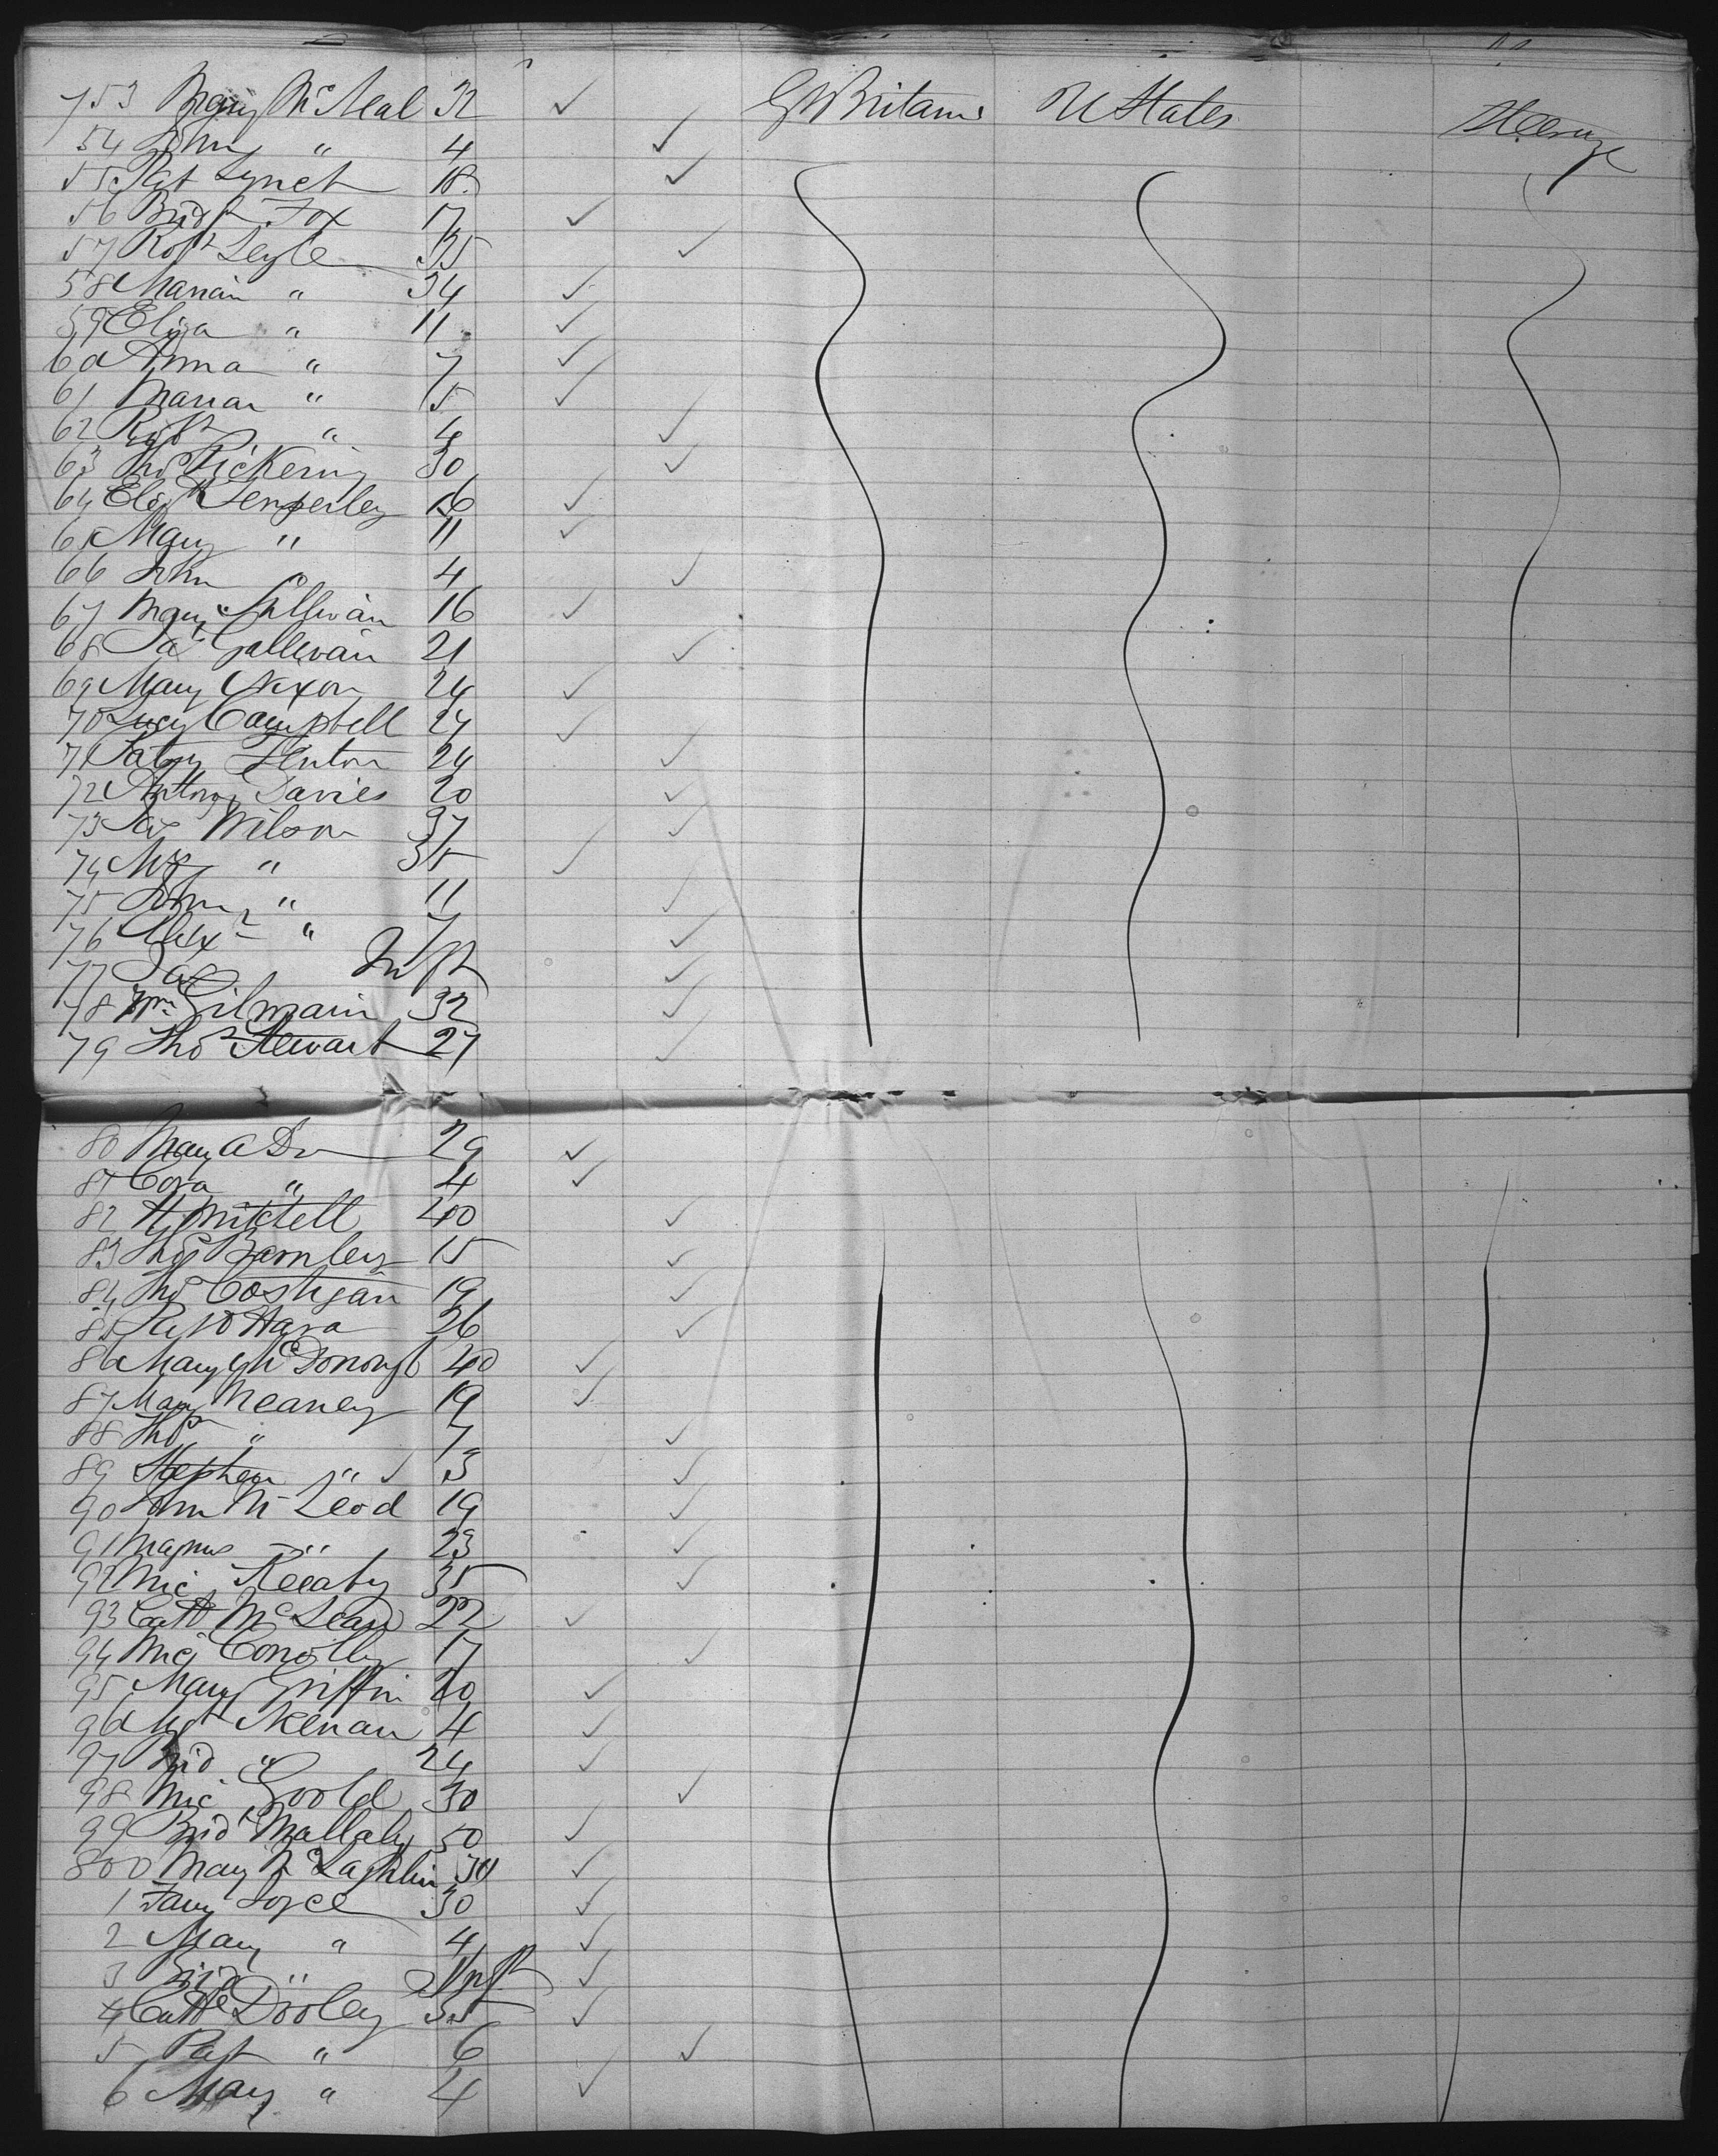 753 Mary McNeal 32 ✓ Gt Britain U States Steerage
54 John " 4 ✓
55 Pat Lynch 18 ✓
56 Bridt Fox 17 ✓
57 Robt Leyle 35 ✓
58 Marian " 34 ✓
59 Eliza " 11 ✓
60 Anna " 7 ✓
61 Marian " 5 ✓
62 Robt " 4 ✓
63 Thos Pickering 30 ✓
64 Elizth Temperley 16 ✓
65 Mary " 11 ✓
66 John " 4 ✓
67 Mary Sullivan 16 ✓
68 Jas Gallivan 21 ✓
69 Mary Nixon 24 ✓
70 Lucy Campbell 27 ✓
71 Patsy Fenton 24 ✓
72 Anthony Davies 20 ✓
73 Jas Wilson 37 ✓
74 " 35 ✓
75 John " 11 ✓
76 Alexr " 7 ✓
77 Jas Inft ✓
78 Wm Gilmain 32 ✓
79 Thos Stewart 27 ✓
80 Mary A Do 29 ✓
81 Cora " 4 ✓
82 H Mitchell 40 ✓
83 Thos Bamley 15 ✓
84 Thos Costigan 19 ✓
85 Pat O Hara 26 ✓
86 Mary McDonough 40 ✓
87 Mary Neaney 19 ✓
88 Thos " 7 ✓
89 Stephen " ✓ 3 ✓
90 John McLeod 19 ✓
91 Magnus " 23 ✓
92 Mic 35 ✓
93 Cath McLean 22 ✓
94 Mic Conolly 17 ✓
95 Mary Griffin 20 ✓
96 Mgt Kenan 4 ✓
97 Brid " 24 ✓
98 Mic Goold 30 ✓
99 Bridt Mallaly 50 ✓
800 Mary McLaghlin 30 ✓
1 Fany Joyce 30 ✓
2 Mary " 4 ✓
3 Brid " Inft ✓
4 Cathe Dooley 35 ✓
5 Pat " 6 ✓
6 Mary " 4 ✓